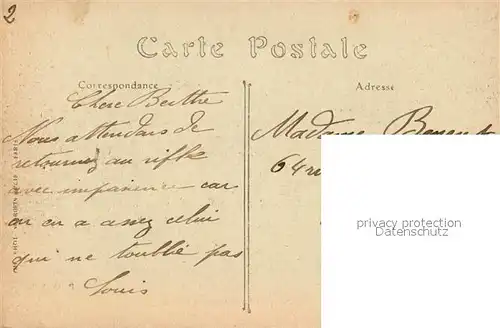 2
Carte Postale
Correspondance
Adresse
Chere Berthe
Nous attendons de
retourner au
avec impatience car
on en a assez celui
qui ne toublie pas
Louis
Madame
64 ru
privacy protection
Datenschutz